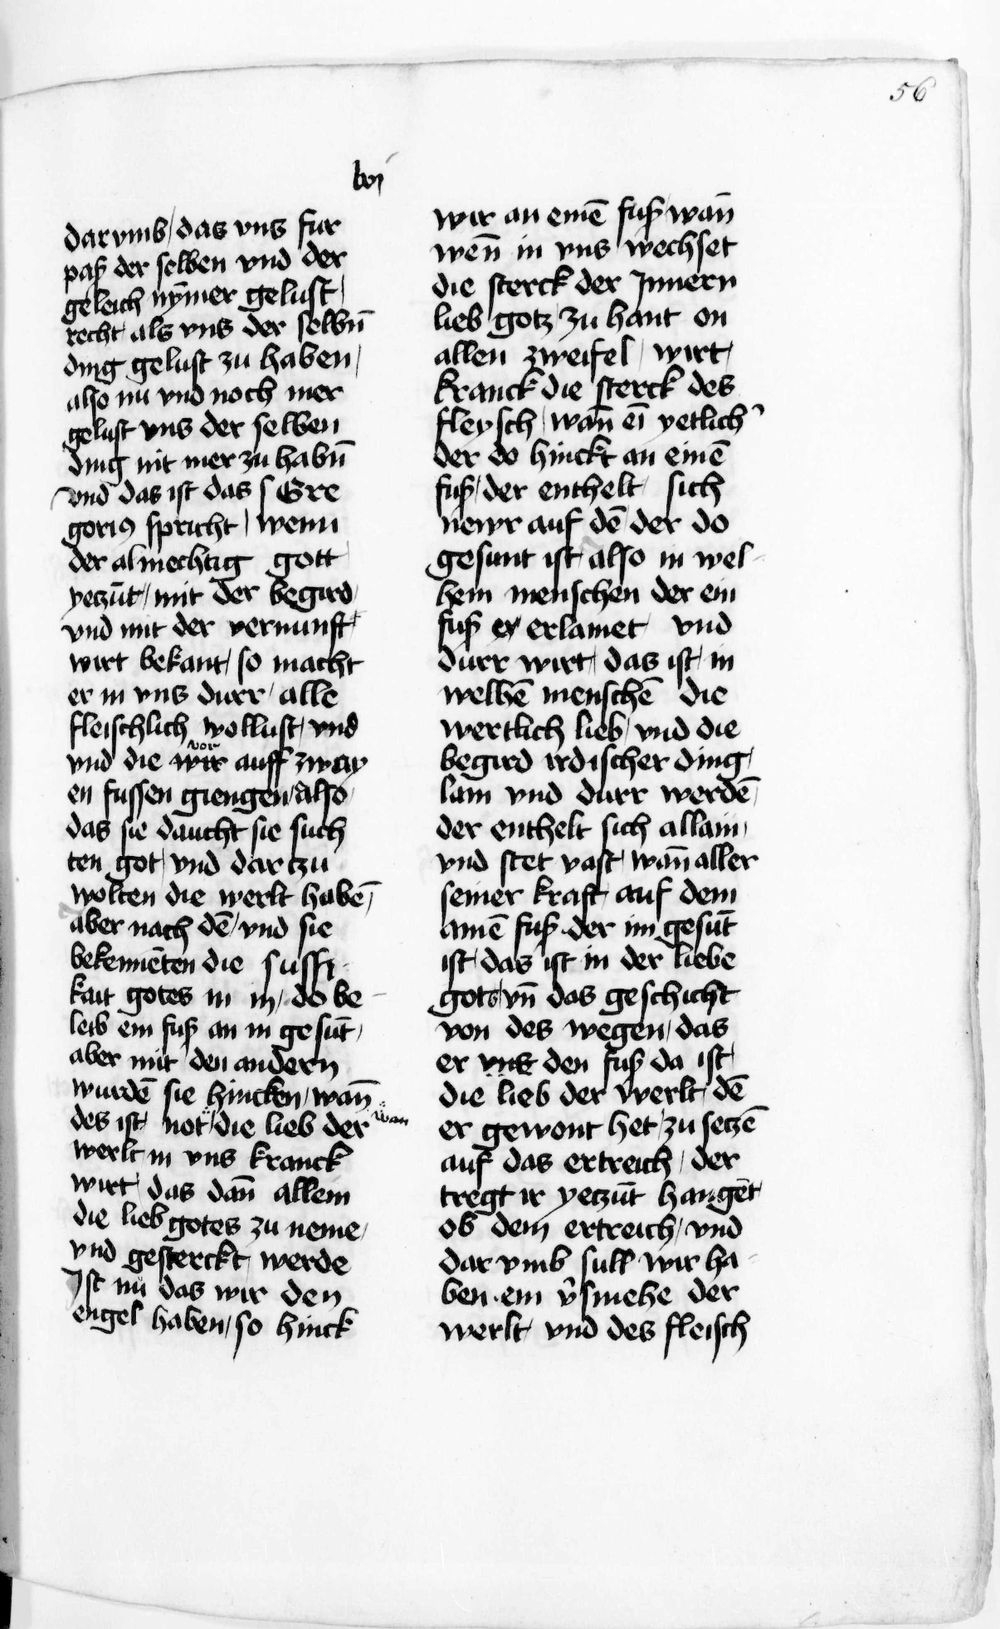 56
lvi
dar vmb / das vns fur
paß der selben vnd der
geleich nȳmer gelust /
recht als vns der selbn̄
ding gelust zu haben /
also nu vnd noch mer
gelust vns der selben
ding nit mer zu habn̄
vnd das ist das s Gre
gorius spricht / wenn
der almechtig gott
yeczūt / mit der begird /
vnd mit der vernunft
wirt bekant / so macht
er in vns durr / alle
fleischlich wollust / vnd
vnd die wir vor auff zway
en fussen giengen / also /
das sie daucht sie such
ten got / vnd dar czu
wolten die werlt habē /
aber nach dē / vnd sie
bekennēten die sussi-
kait gotes in in / do be-
leib ein fuß an in gesūt /
aber mit den andern
wurdē sie hincken / wan̄
des ist not / die lieb der wan
werlt in vns kranck
wirt / das dan̄ allein
die lieb gotes zu neme /
vnd gesterckt werde
Ist nu das wir den
engel haben / so hinck
wir an einē fuß / wan̄
wen̄ in vns wechset
die sterck der Innern
lieb gotz / zu hant on
allen zweifel / wirt /
kranck die sterck des
fleysch / wan̄ eī yetlich'
der do hinckt an einē
fuß / der enthelt sich
newr auf dē der do
gesunt ist / also in wel-
hem menschen der ein
fuß er erlamet vnd
durr wirt / das ist / in
welhē menschē die
wertlich lieb / vnd die
begird irdischer ding /
lam vnd durr werdē /
der enthelt sich allain /
vnd stet vast / wan̄ aller
seiner kraft / auf dem
ainē fuß · der im gesūt
ist / das ist in der liebe
gots / vn̄ das geschicht
von des wegen / das
er vns den fuß da ist
die lieb der werlt / dē
er gewont het / zu seczē
auf das ertreich / der
tregt ir yeczūt hangēt
ob dem ertreich / vnd
dar vmb sull wir ha-
ben · ein v̾smehe der
werlt / vnd des fleisch